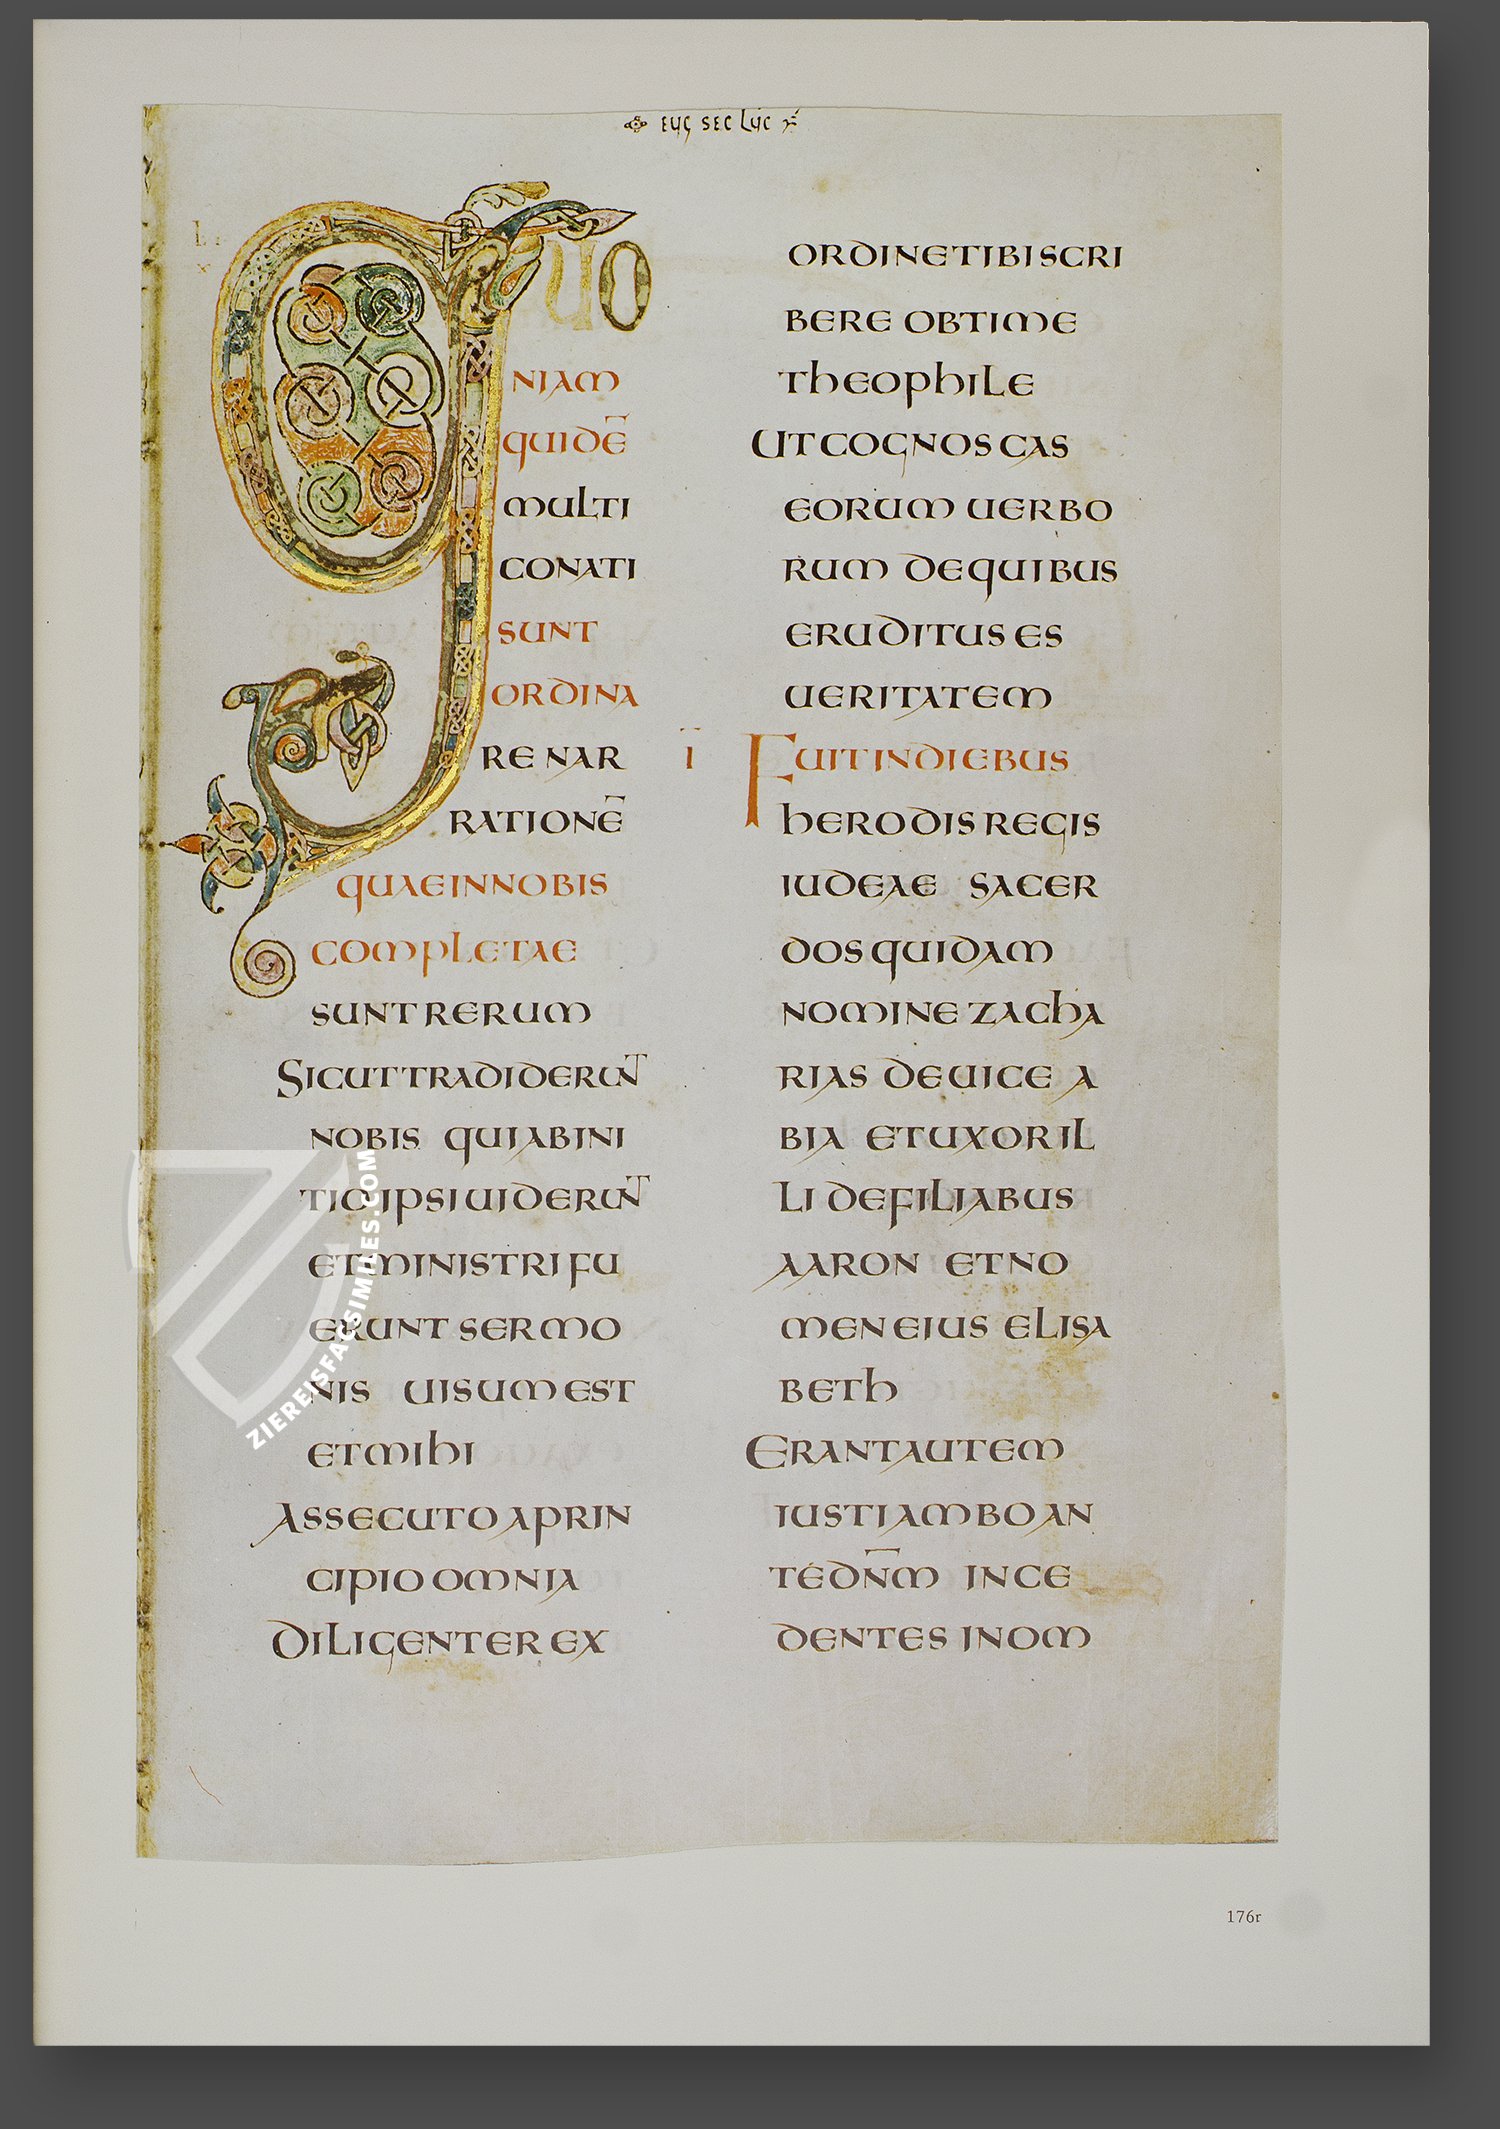 EUG SEC LUC
QUO
NIAM
QUIDE̅
MULTI
CONATI
SUNT
ORDINA
RE NAR
RATIONE̅
QUAE IN NOBIS
COMPLETAE
SUNT RERUM
SICUT TRADIDERUNT
NOBIS QUI AB INI
TIO IPSI UIDERUNT
ET MINISTRI FU
ERUNT SERMO
NIS UISUM EST
ET MIHI
ASSECUTO A PRIN
CIPIO OMNIA
DILIGENTER EX
ORDINE TIBI SCRI
BERE OBTIME
THEOPHILE
UT COGNOSCAS
EORUM UERBO
RUM DE QUIBUS
ERUDITUS ES
UERITATEM
I̅ FUIT IN DIEBUS
HERODIS REGIS
IUDEAE SACER
DOS QUIDAM
NOMINE ZACHA
RIAS DE UICE A
BIA ET UXOR IL
LI DE FILIABUS
AARON ET NO
MEN EIUS ELISA
BETH
ERANT AUTEM
IUSTI AMBO AN
TE DN̅M INCE
DENTES IN OM
ZIEREISFACSIMILES.COM
176r